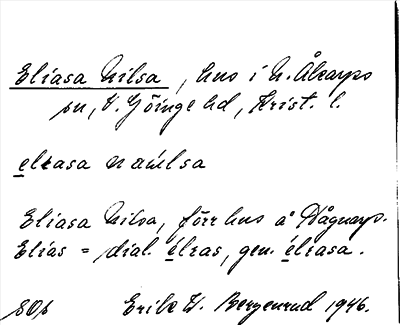 Eliasa Nilsa, hus i N. Åkarps
sn, V. Göinge hd, Krist. l.
elɩasa naúlsa
Eliasa Nilsa, förr hus å Hågnarp.
Elias = dial. élɩas, gen. élɩasa.
SOp Erik W. Bergenrud 1946.